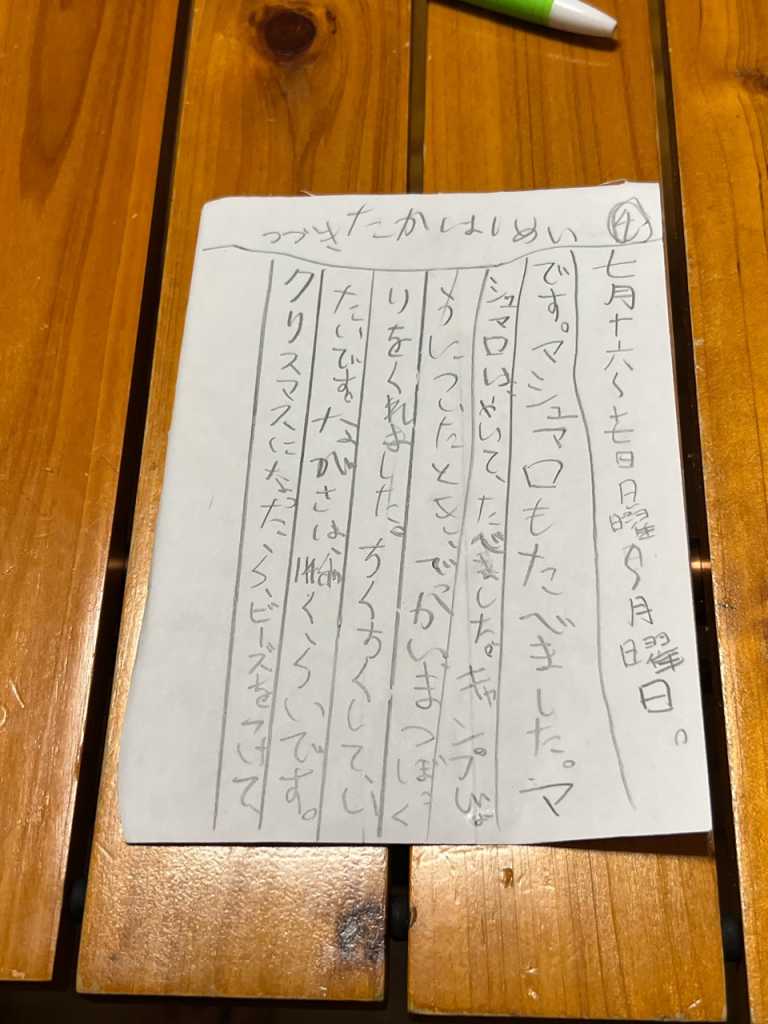 ④
つづきたかはしめい
七月十六〜十七日日曜〜月曜日。
です。マシュマロもたべました。マ
シュマロは、やいて、たべました。キャンプじょ
うについたとき、でっかいまつぼっく
りをくれました。ちくちくして、い
たいです。ながさは、くらいです。
クリスマスになったら、ビーズをつけて、